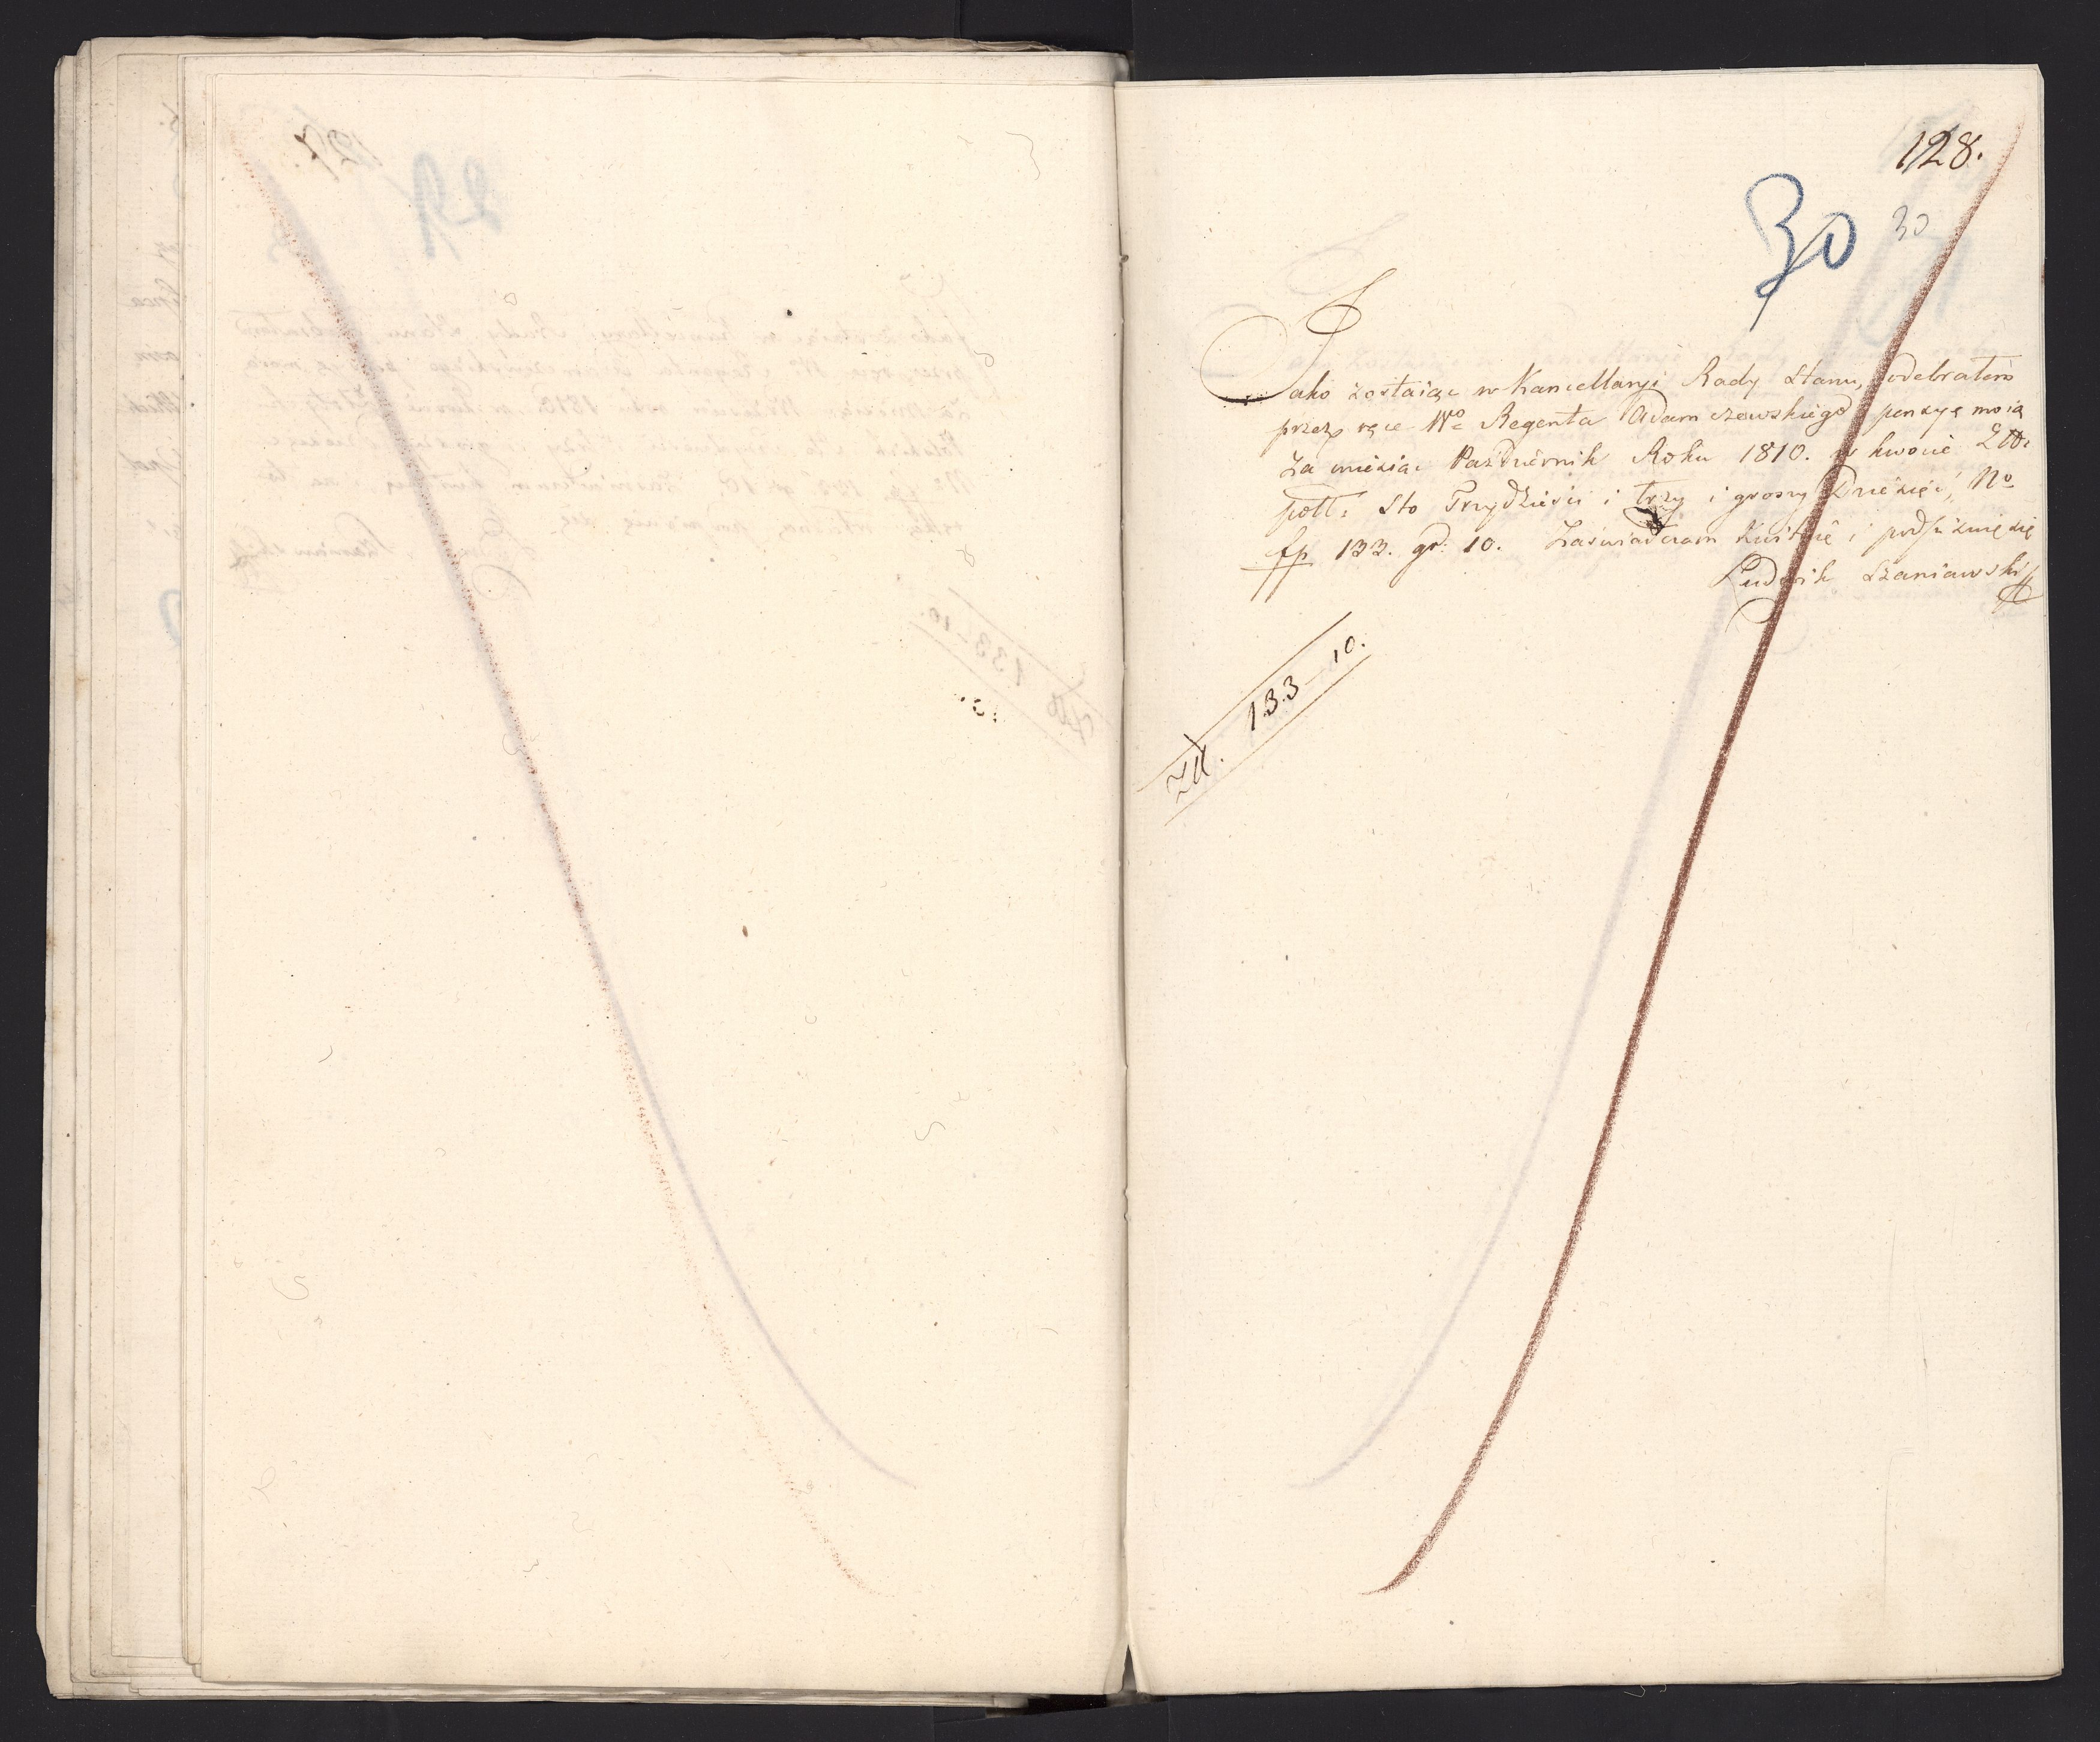 128.
30 30
Jako zostaiąc w Kancellaryi Rady Stanu, odebrałem
przez ręce Wo Regenta Adamczewskiego pensyę moią
za miesiąc Paźdiernik Roku 1810. w kwocie Złł:
poll: Sto Trzydzieści i trzy i groszy Dziesięć, No
fp 133. gr: 10. Zaświadczam Kwituię i podpisuię się
Ludwik Szaniawski
Złł. 133 – 10.